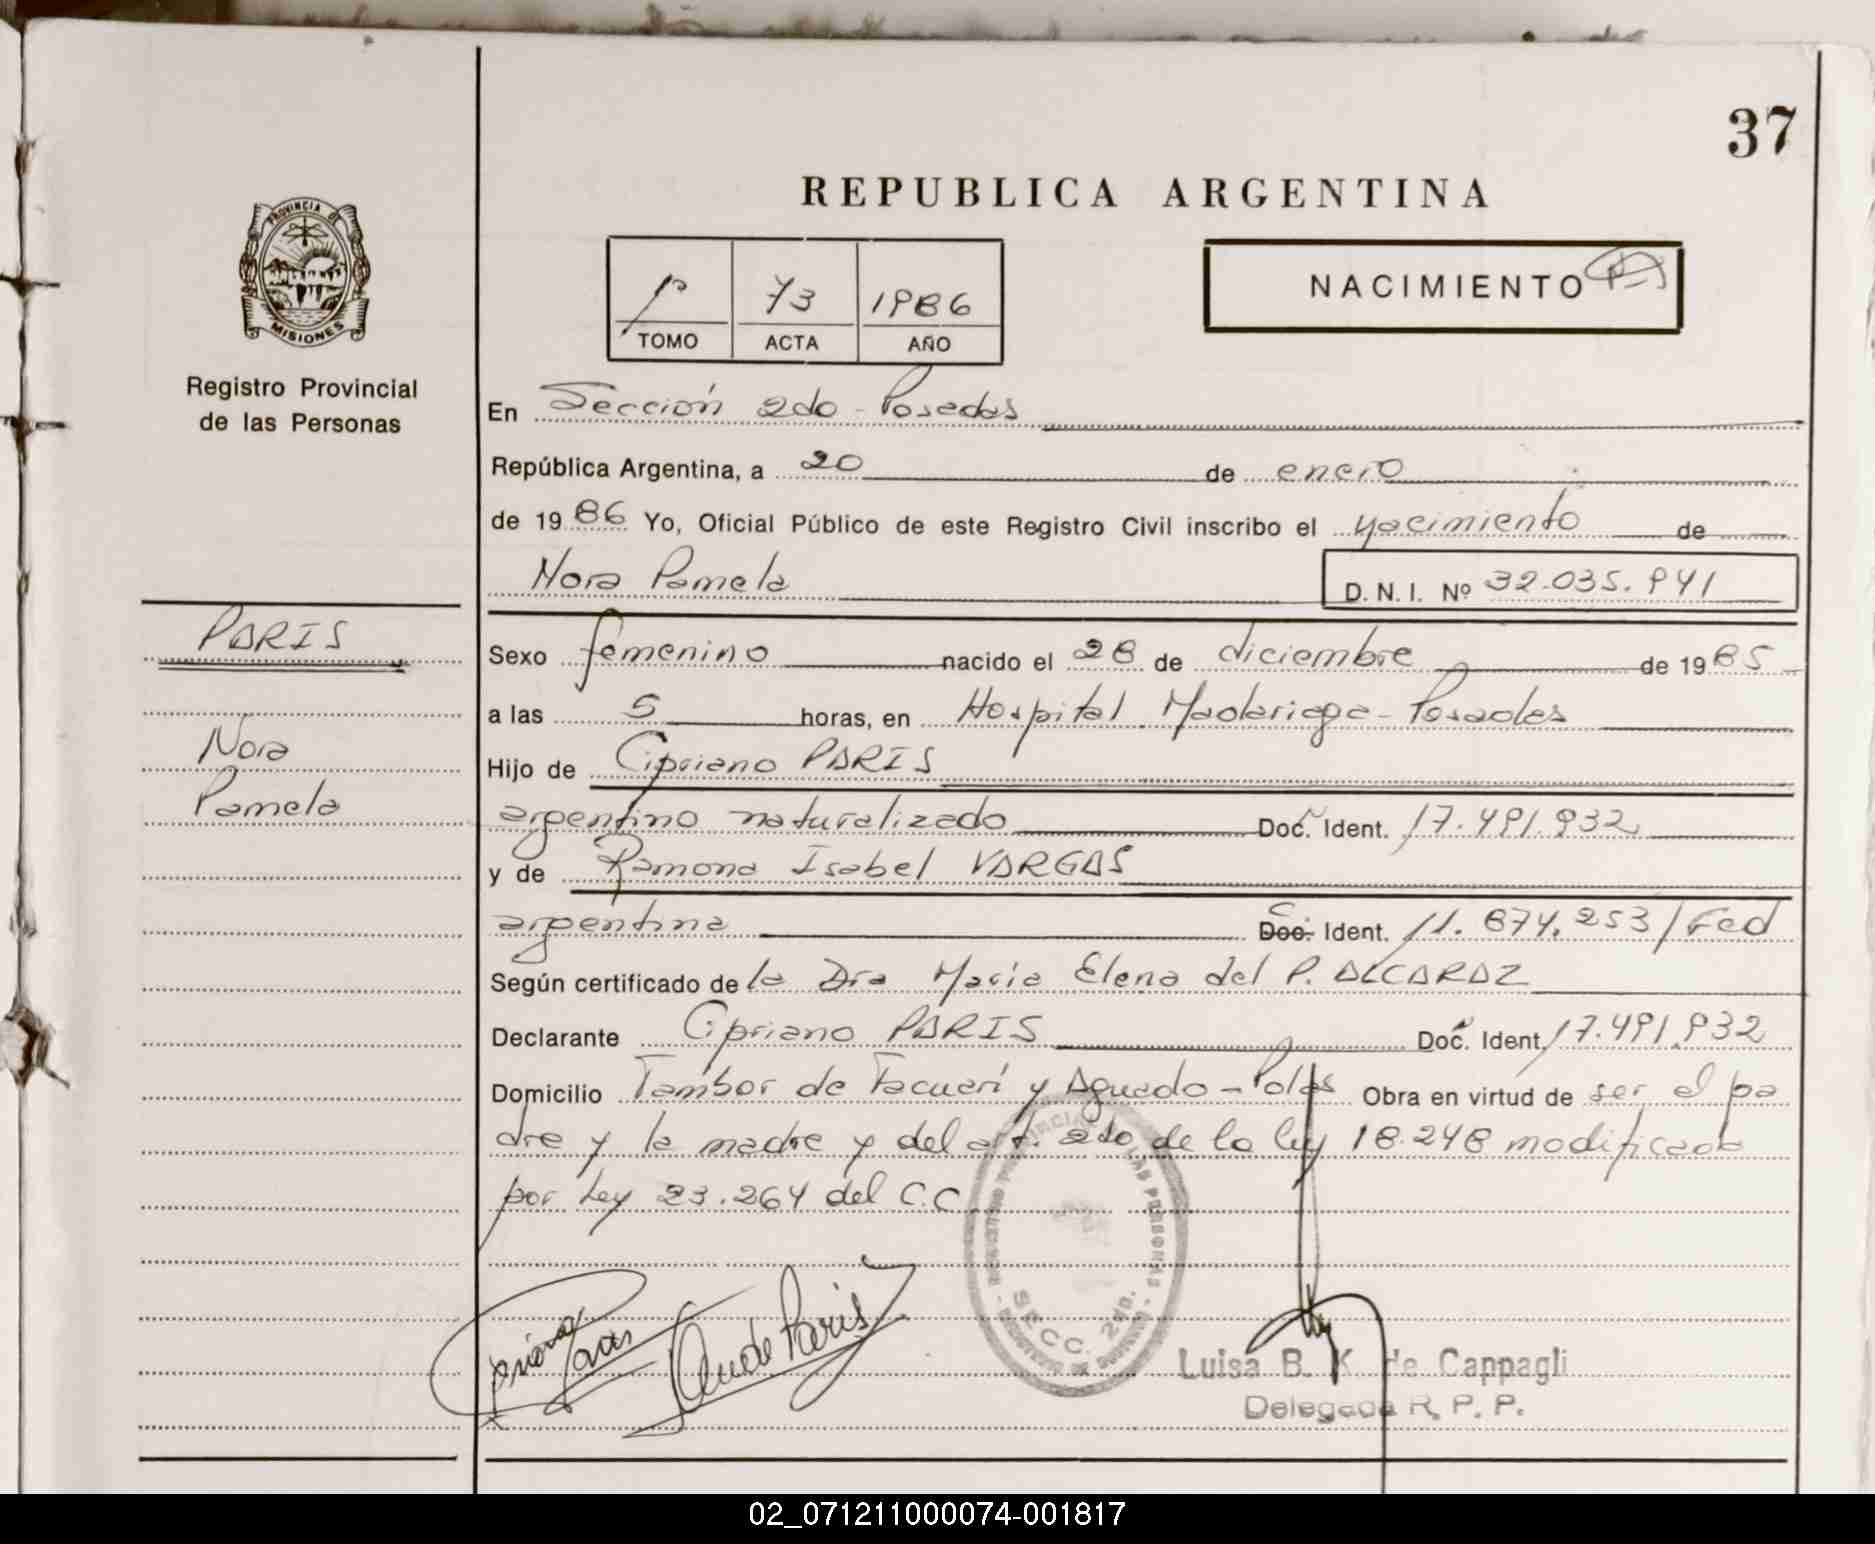 37
REPUBLICA ARGENTINA
PROVINCIA DE
MISIONES
Registro Provincial
de las Personas
1º 73 1986
TOMO ACTA AÑO
NACIMIENTO
En Sección 2do - Posadas
República Argentina, a 20 de enero
de 1986 Yo, Oficial Público de este Registro Civil inscribo el nacimiento de
Nora Pamela D. N. I. Nº 32.035.941
PARIS
Nora
Pamela
Sexo femenino nacido el 28 de diciembre de 1985
a las 5 horas, en Hospital Madariaga - Posadas
Hijo de Cipriano PARIS
argentino naturalizado Doc. Ident. 17.491.932
y de Ramona Isabel VARGAS
argentina Doc. Ident. 11.874.253/Fed
Según certificado de la Dra Maria Elena del P. ALCARAZ
Declarante Cipriano PARIS Doc. Ident. 17.491.932
Domicilio Tambor de Tacuarí y Aguado - Pdas Obra en virtud de ser el pa
dre y la madre y del art. 2do de la ley 18.248 modificada
por Ley 23.264 del C.C
REGISTRO PROVINCIAL DE LAS PERSONAS
SECC. 2da.
de Paris
Luisa B. K. de Cappagli
Delegada R. P. P.
02_071211000074-001817